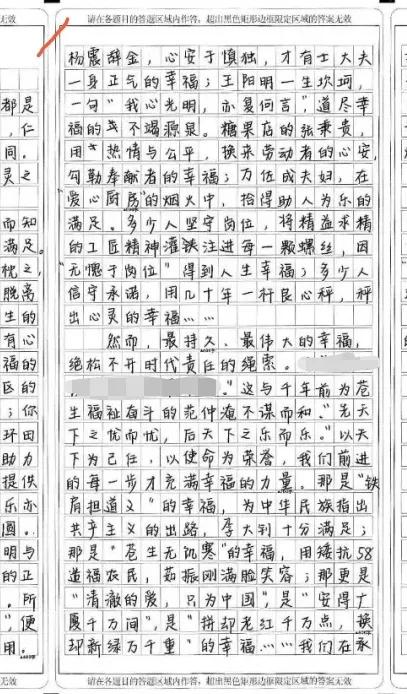 无效
都是
，仁
间。
灵之
而知
满足。
枕之，
脱离
生的
有心
福的
区的
；你
助力
提供
乐亦
圆。
明与
的正
。所
，便
用。
无效
请在各题目的答题区域内作答，超出黑色矩形边框限定区域的答案无效
杨震辞金，心安于慎独，才有士大夫
一身正气的幸福；王阳明一生坎坷，
一句“我心光明，亦复何言”，道尽幸
福的不竭源泉。糖果店的张秉贵，
用热情与公平，换来劳动者的心安，
勾勒奉献者的幸福；万佐成夫妇，在
爱心厨房的烟火中，拾得助人为乐的
满足。多少人坚守岗位，将精益求精
的工匠精神灌注进每一颗螺丝，因
“无愧于岗位”得到人生幸福；多少人
信守承诺，用几十年一杆良心秤，秤
出心灵的幸福……
然而，最持久、最伟大的幸福，
绝松不开时代责任的绳索。
。”这与千年前为苍
生福祉奋斗的范仲淹不谋而和。“先天
下之忧而忧，后天下之乐而乐。”以天
下为己任，以使命为荣誉，我们前进
的每一步才充满幸福的力量。那是“铁
肩担道义”的幸福，为中华民族指出
共产主义的出路，李大钊十分满足；
那是“苍生无饥寒”的幸福，用矮抗58
造福农民，茹振刚满脸笑容；那更是
“清澈的爱，只为中国”，是“安得广
厦千万间”，是“拼却老红千万点，换
却新绿万千重”的幸福……我们在永
请在各题目的答题区域内作答，超出黑色矩形边框限定区域的答案无效
请